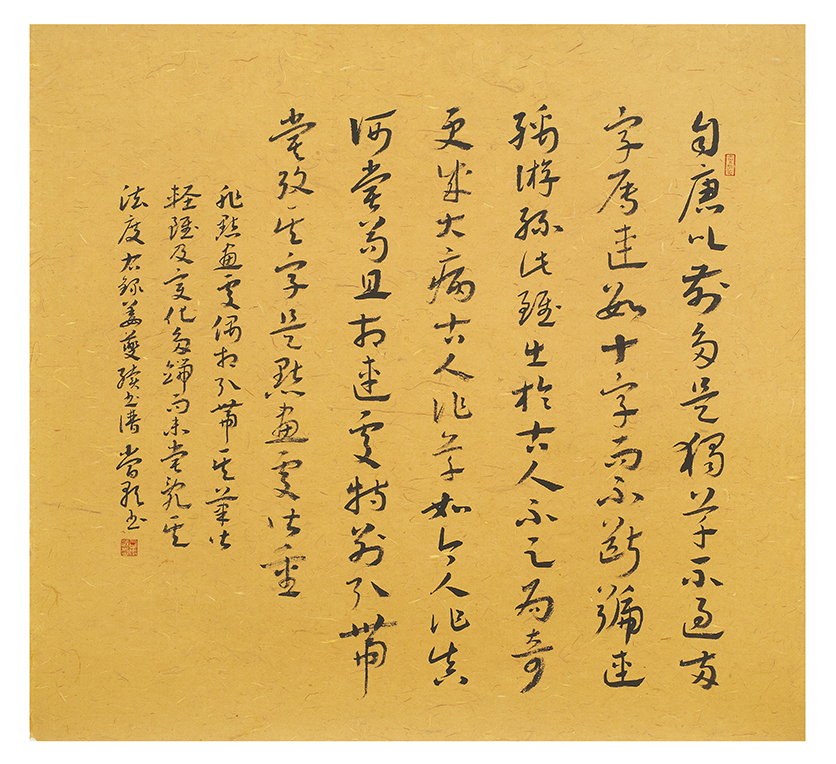 自唐以前多是獨草不過兩
字屬連數十字而不斷號連
綿游絲此雖出於古人不足為奇
更成大病古人作草如今人作真
何嘗苟且相連處特引帶
嘗攷其字是點畫處皆重
非點畫處偶相引帶其筆皆
輕雖復變化多端而未嘗亂其
法度右錄姜夔續書譜書